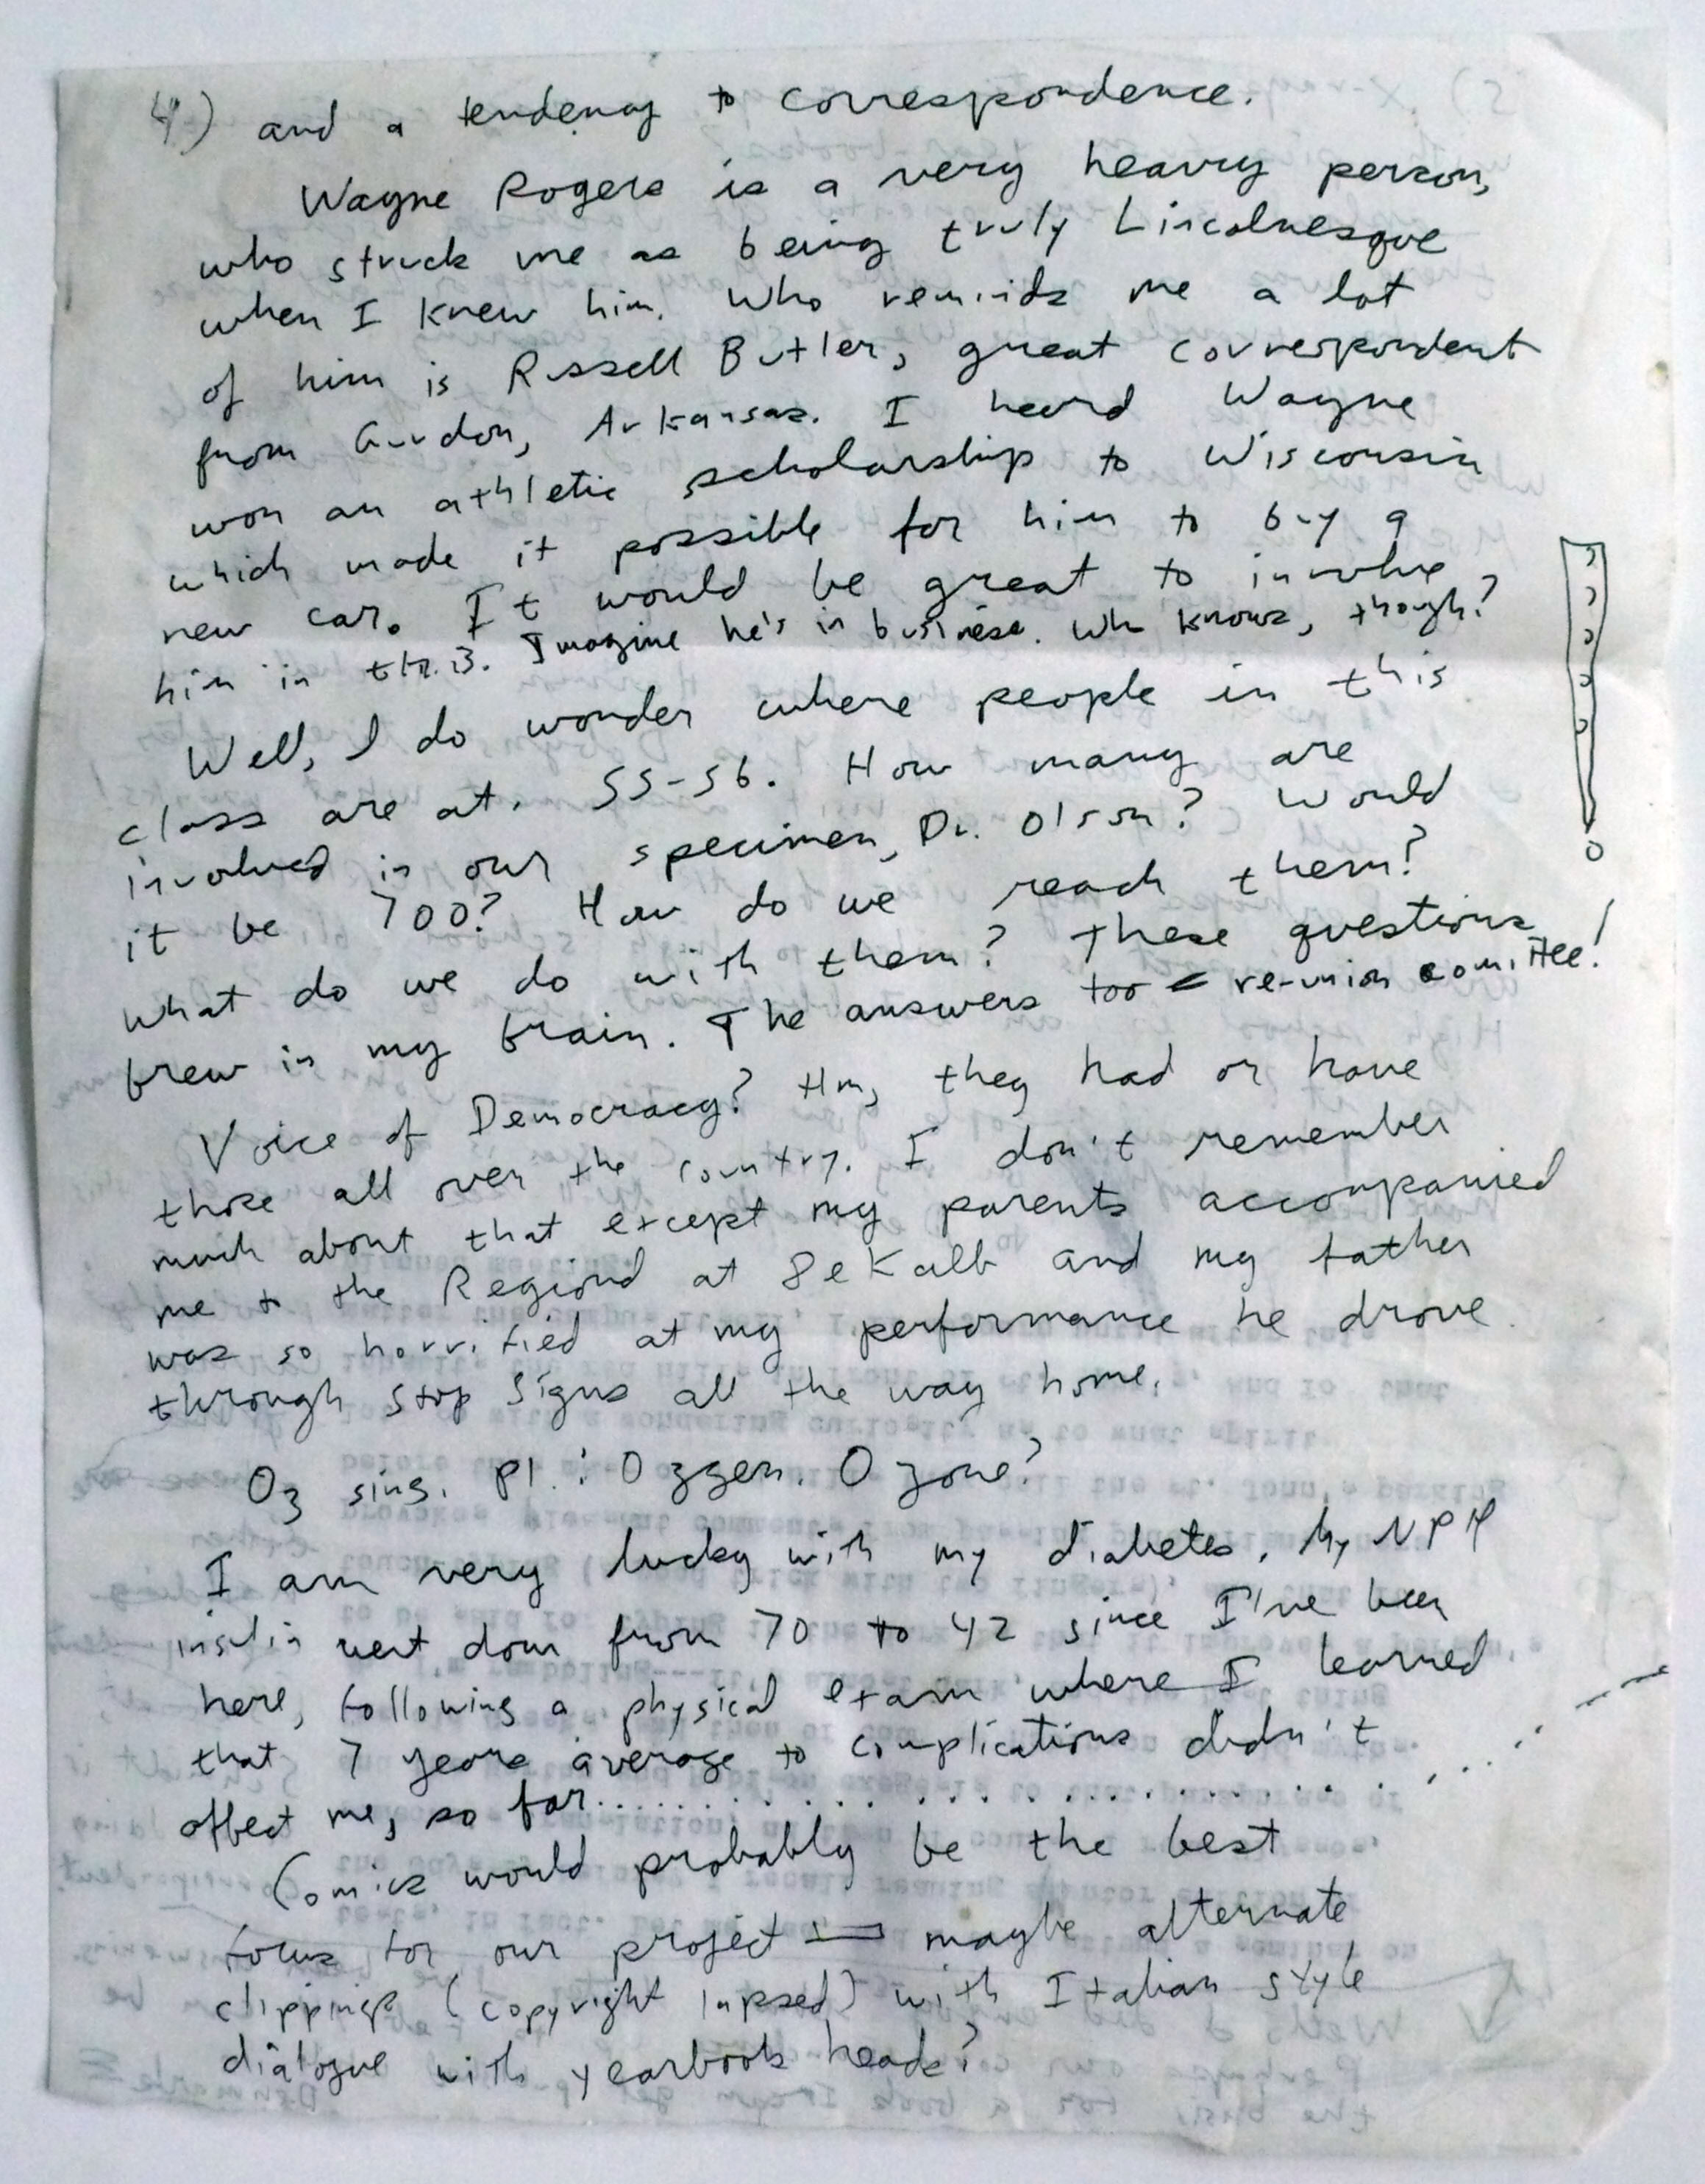 4) and a tendency to correspondence.
Wayne Rogers is a very heavy person,
who struck me as being truly Lincolnesque
when I knew him. Who reminds me a lot
of him is Russell Butler, great correspondent
from Gurdon, Arkansas. I heard Wayne
won an athletic scholarship to Wisconsin
which made it possible for him to buy a
new car. It would be great to involve
him in this. Imagine he's in business. Who knows, though?
Well, I do wonder where people in this
class are at. 55-56. How many are
involved in our specimen, Dr. Olson? Would
it be 700? How do we reach them?
What do we do with them? These questions
brew in my brain. The answers too = re-union comittee!
Voice of Democracy? Hm, they had or have
those all over the country. I don't remember
much about that except my parents accompanied
me to the Regional at DeKalb and my father
was so horrified at my performance he drove
through stop signs all the way home.
Oz sing. Pl.: Ozzen. Ozone?
I am very lucky with my diabetes. My NPH
insulin went down from 70 to 42 since I've been
here, following a physical exam where I learned
that 7 years average to complications didn't
affect me, so far..............................
Comics would probably be the best
focus for our project — maybe alternate
clippings (copyright lapsed) with Italian style
dialogue with yearbook heads?